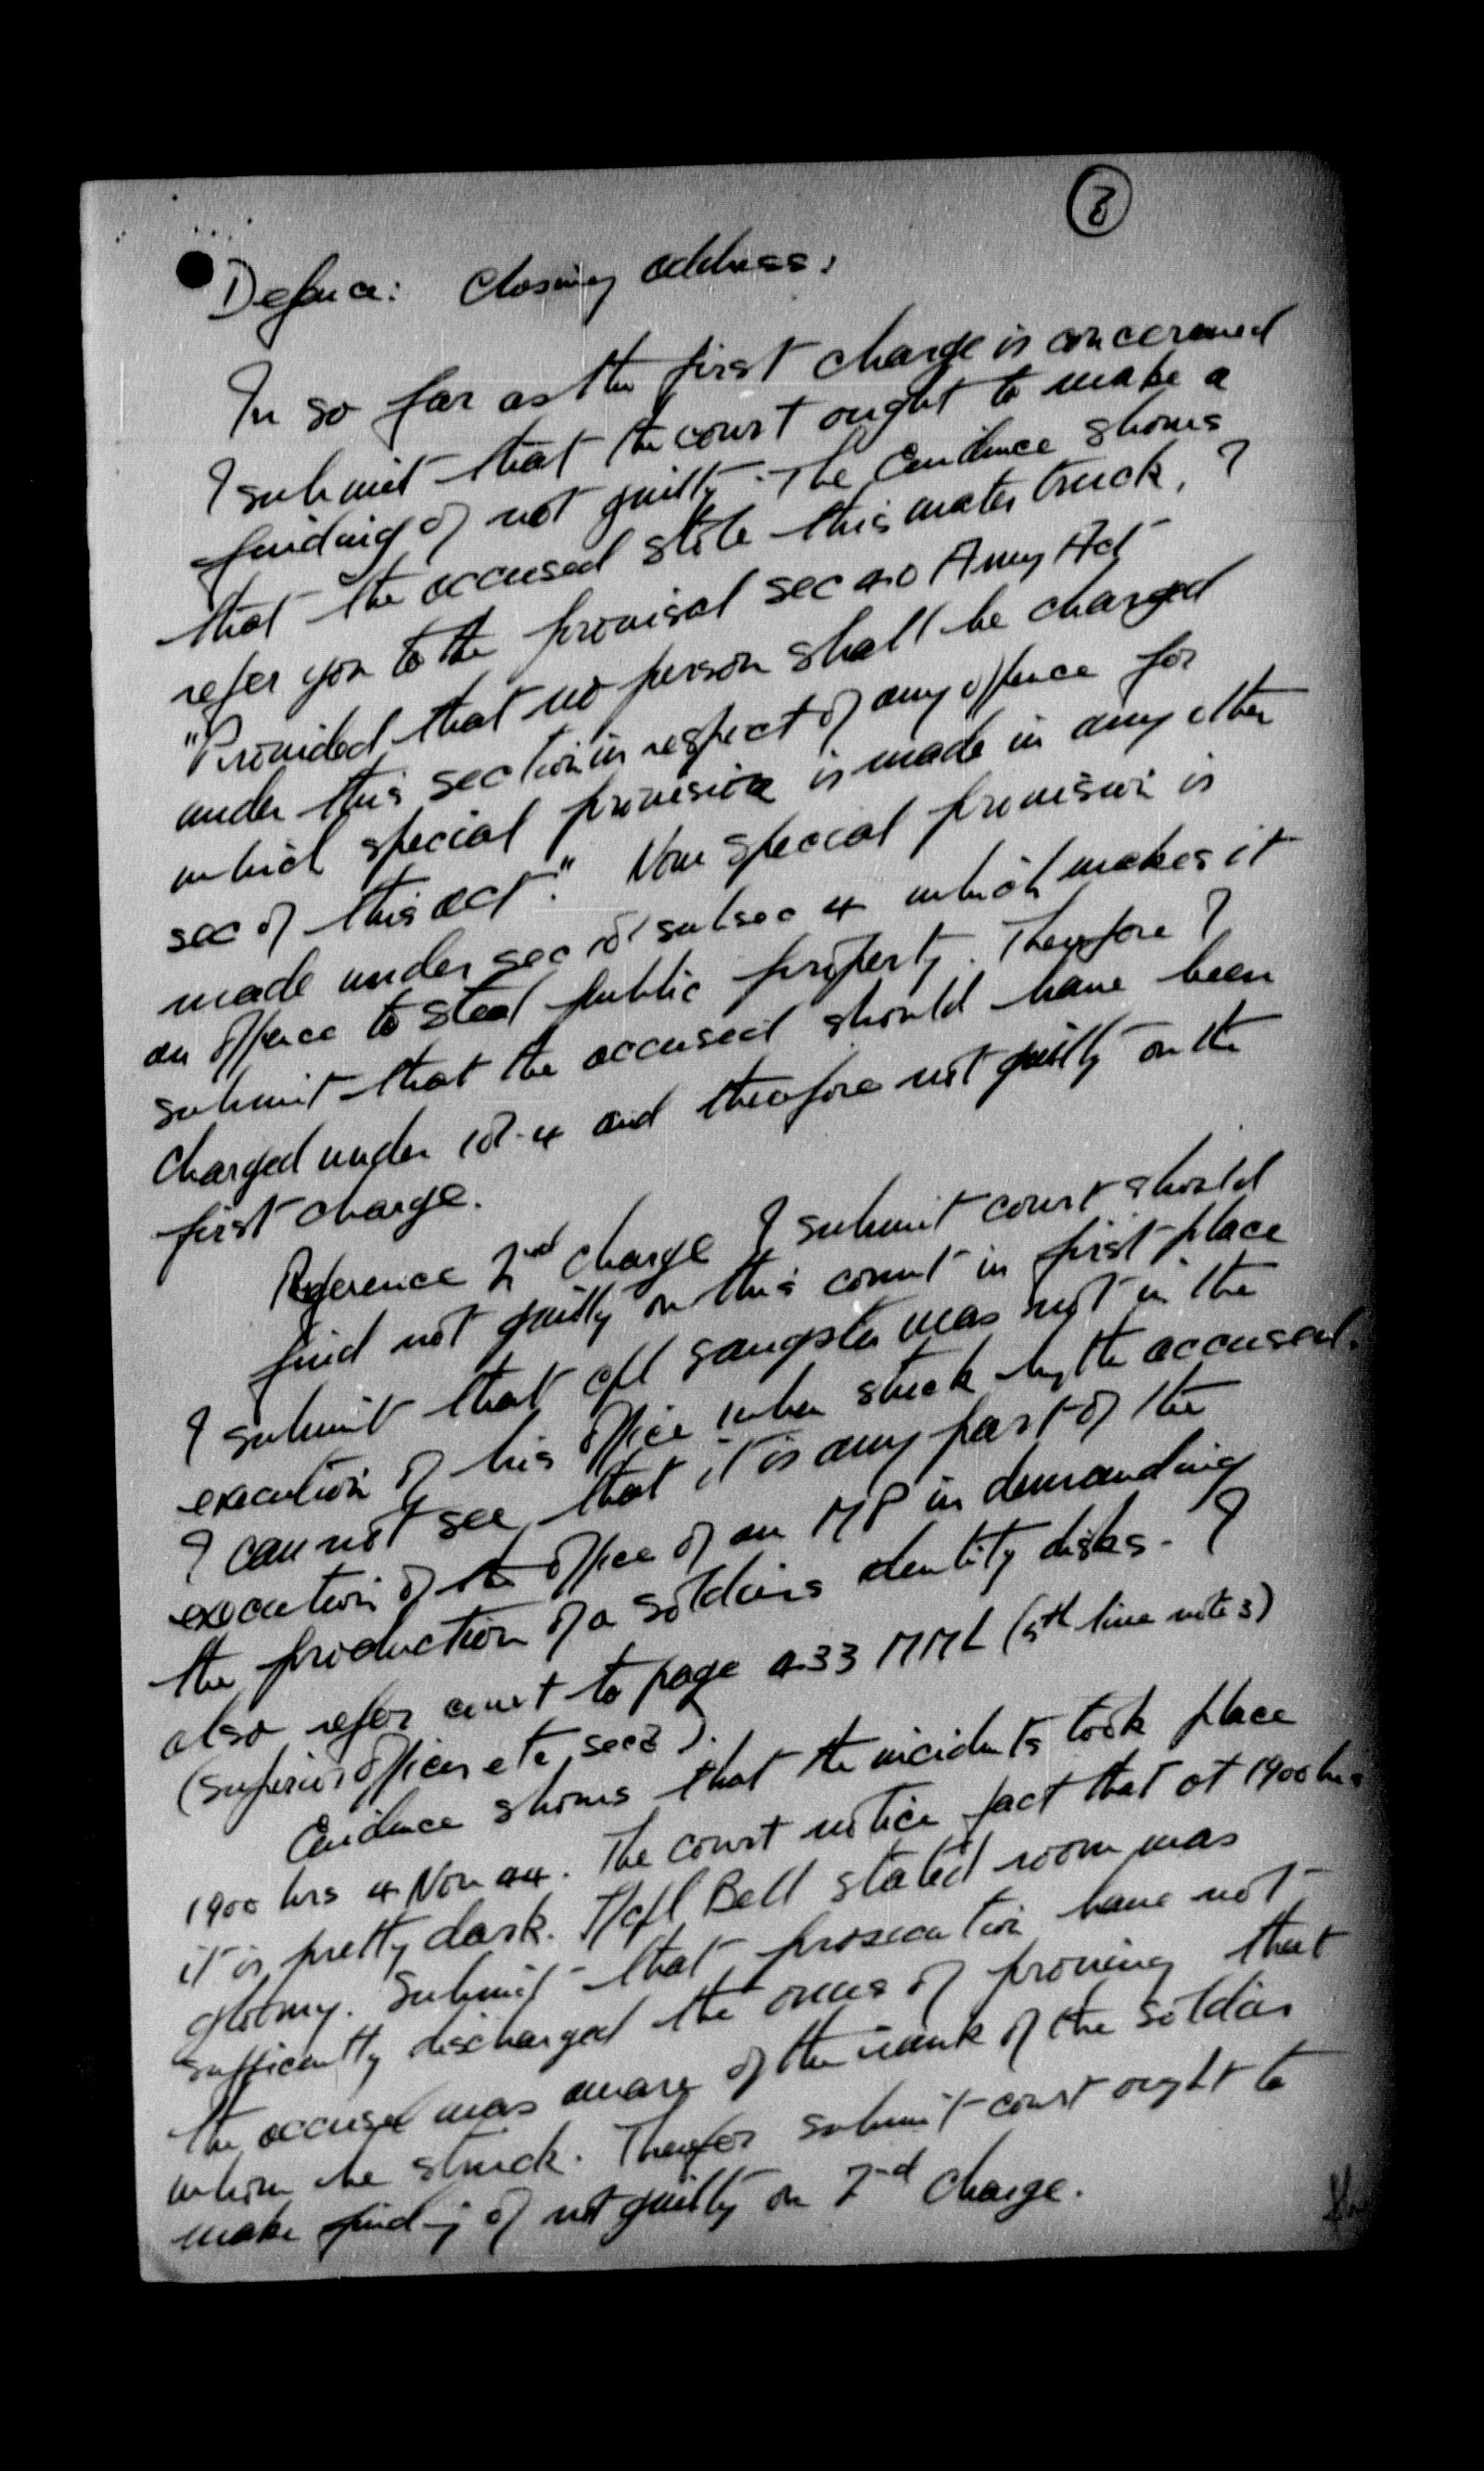 8
Defence: Closing address:
In so far as the first charge is concerned
I submit that the court ought to make a
finding of not guilty. The Evidence shows
that the accused stole this water truck. I
refer you to the sec 40 Army Act
"Provided that no person shall be charged
under this section in respect of any offence for
which special provision is made in any other
sec of this act." Now special provision is
made under sec 18 subsec 4 which makes it
an offence to steal public property. Therefore I
submit that the accused should have been
charged under 18-4 and therefore not guilty on the
first charge.
Reference 2nd charge I submit court should
find not guilty on this count in first place
I submit that cpl Sangster was not in the
execution of his office when struck by the accused.
I cannot see that it is any part of the
execution of the office of an MP in demanding
the production of a soldiers identity disks. I
also refer court to page 433 MML (5th line note 3)
(superior officer etc sec 8).
Evidence shows that the incidents took place
1900 hrs 4 Nov 44. The court notice fact that at 1900 hrs
it is pretty dark. Cpl Bell stated room was
gloomy. Submit that prosecution have not
sufficently discharged the onus of proving that
the accused was aware of the rank of the soldier
whom he struck. Therefor submit court ought to
make finding of not guilty on 2nd charge.